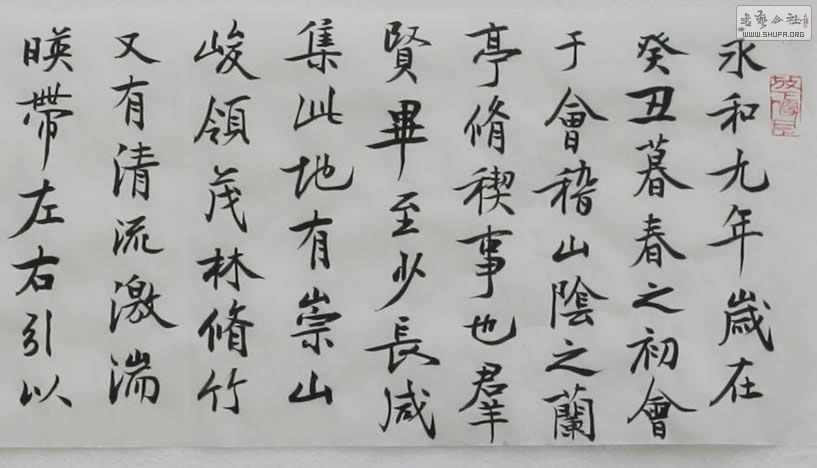 永和九年歲在
癸丑暮春之初會
于會稽山陰之蘭
亭脩禊事也羣
賢畢至少長咸
集此地有崇山
峻領茂林脩竹
又有清流激湍
暎帶左右引以
书艺公社
WWW.SHUFA.ORG